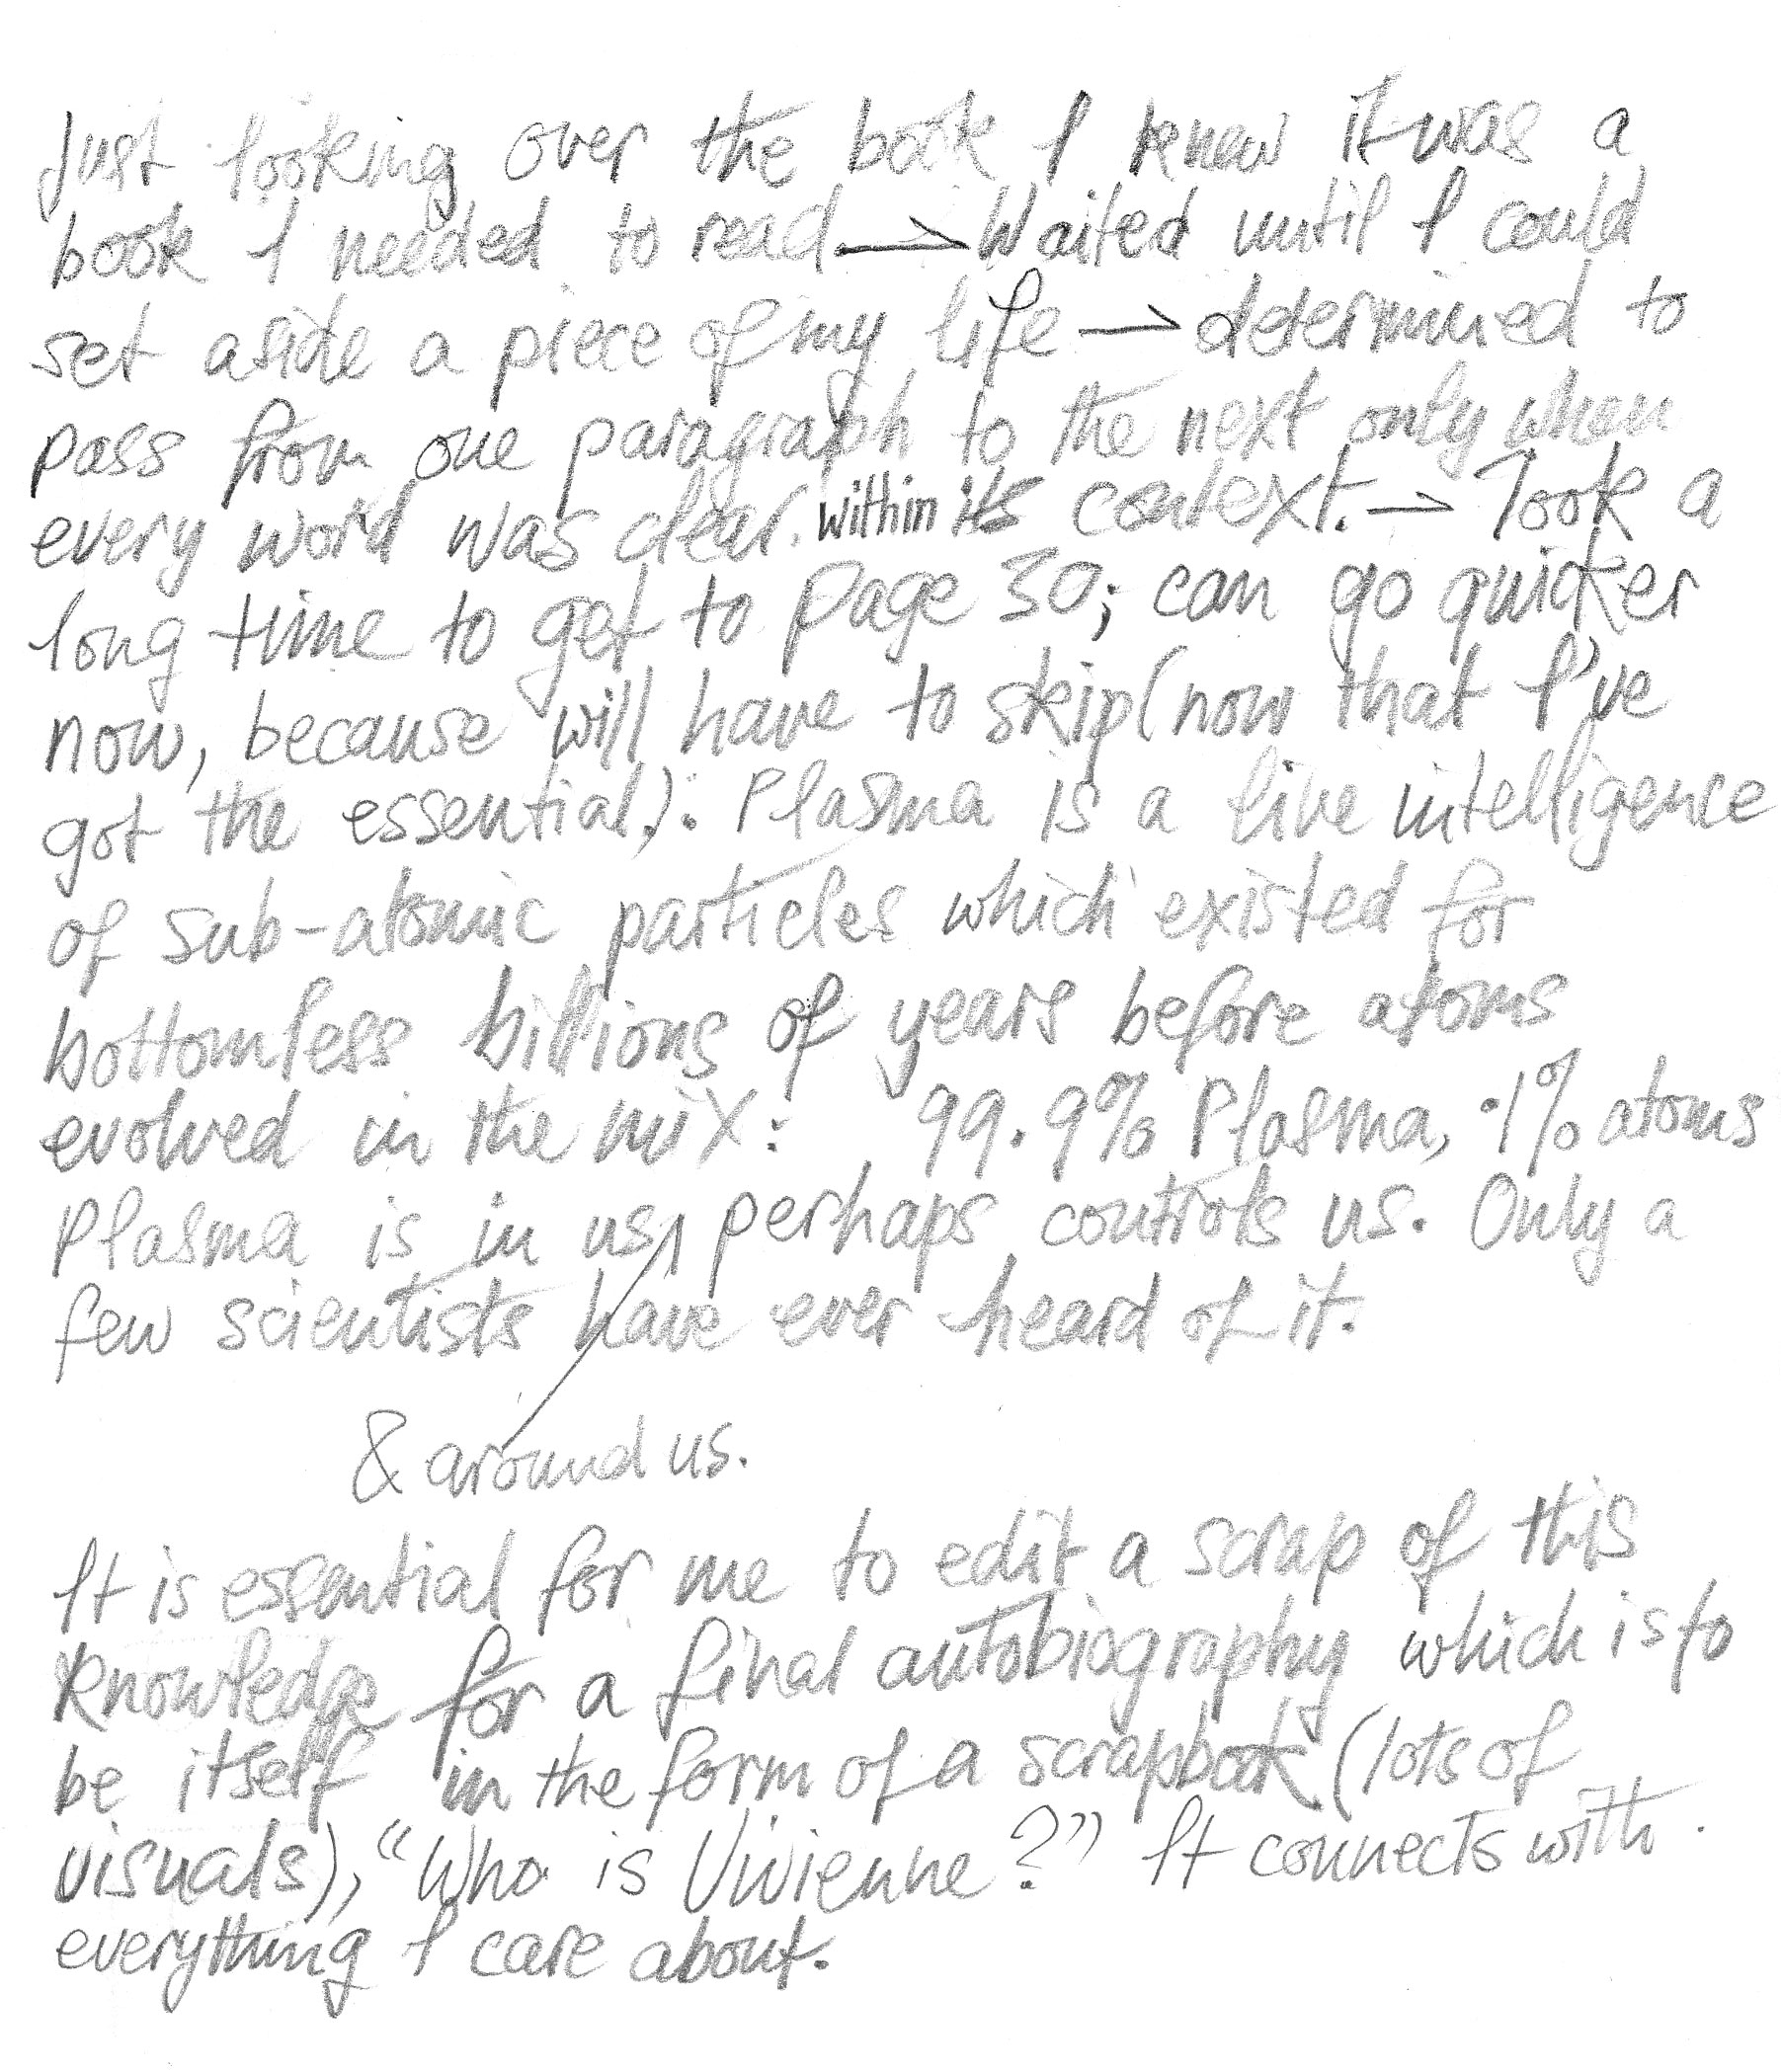 Just looking over the book I knew it was a
book I needed to read → Waited until I could
set aside a piece of my life → determined to
pass from one paragraph to the next only when
every word was clear. within its context. → Took a
long time to get to page 30; can go quicker
now, because will have to skip (now that I've
got the essential.): Plasma is a live intelligence
of sub-atomic particles which existed for
bottomless billions of years before atoms
evolved in the mix: 99.9% Plasma, .1% atoms
Plasma is in us, perhaps controls us. Only a
few scientists have ever heard of it.
& around us.
It is essential for me to edit a scrap of this
knowledge for a final autobiography which is to
be itself in the form of a scrapbook (lots of
visuals), "Who is Vivienne?" It connects with
everything I care about.